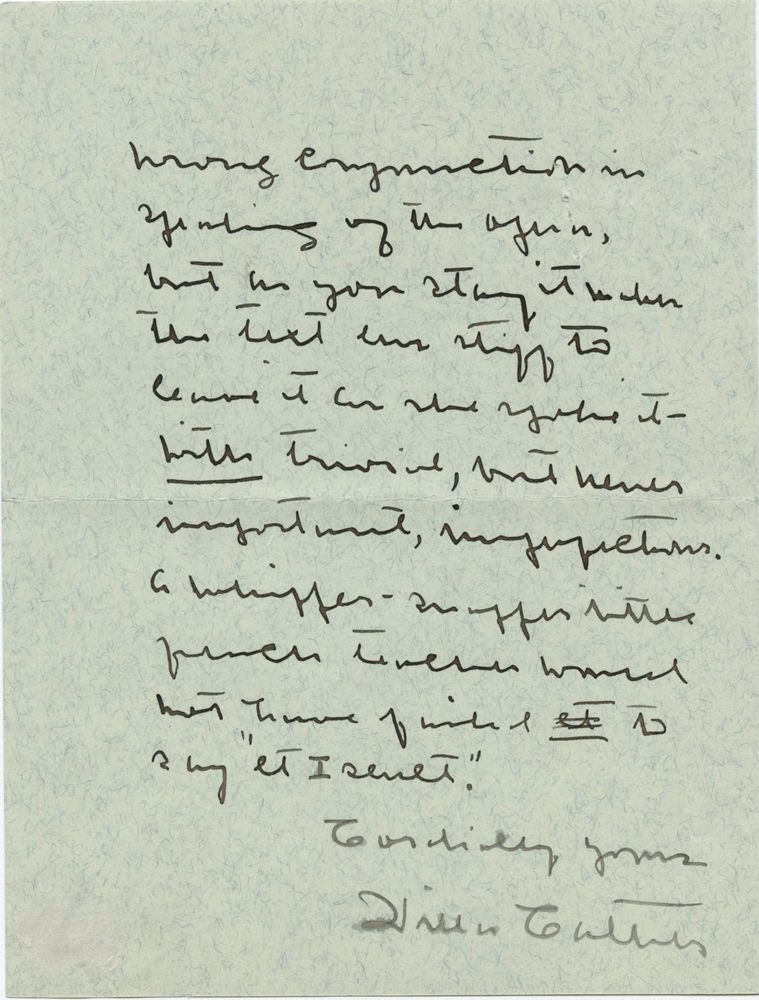 wrong conjunction in
speaking of the opera,
but as you say it makes
the text less stiff to
leave it as she spoke it—
with trivial, but never
important, imperfections.
A whipper-snapper little
french teacher would
not have failed et to
say "et Iseult."
Cordially yours
Willa Cather